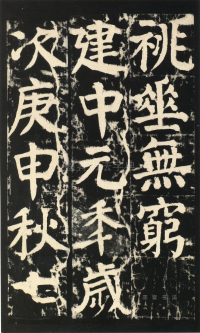 祧垂無窮
建中元年歲
次庚申秋七